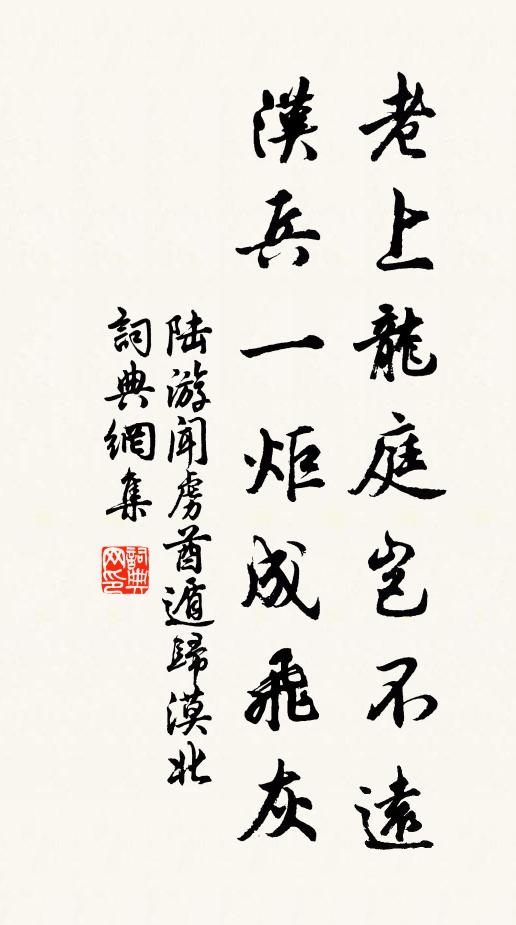 老上龍庭豈不遠
漢兵一炬成飛灰
陆游闻虏酋遁歸漠北
詞典網集
詞典网印